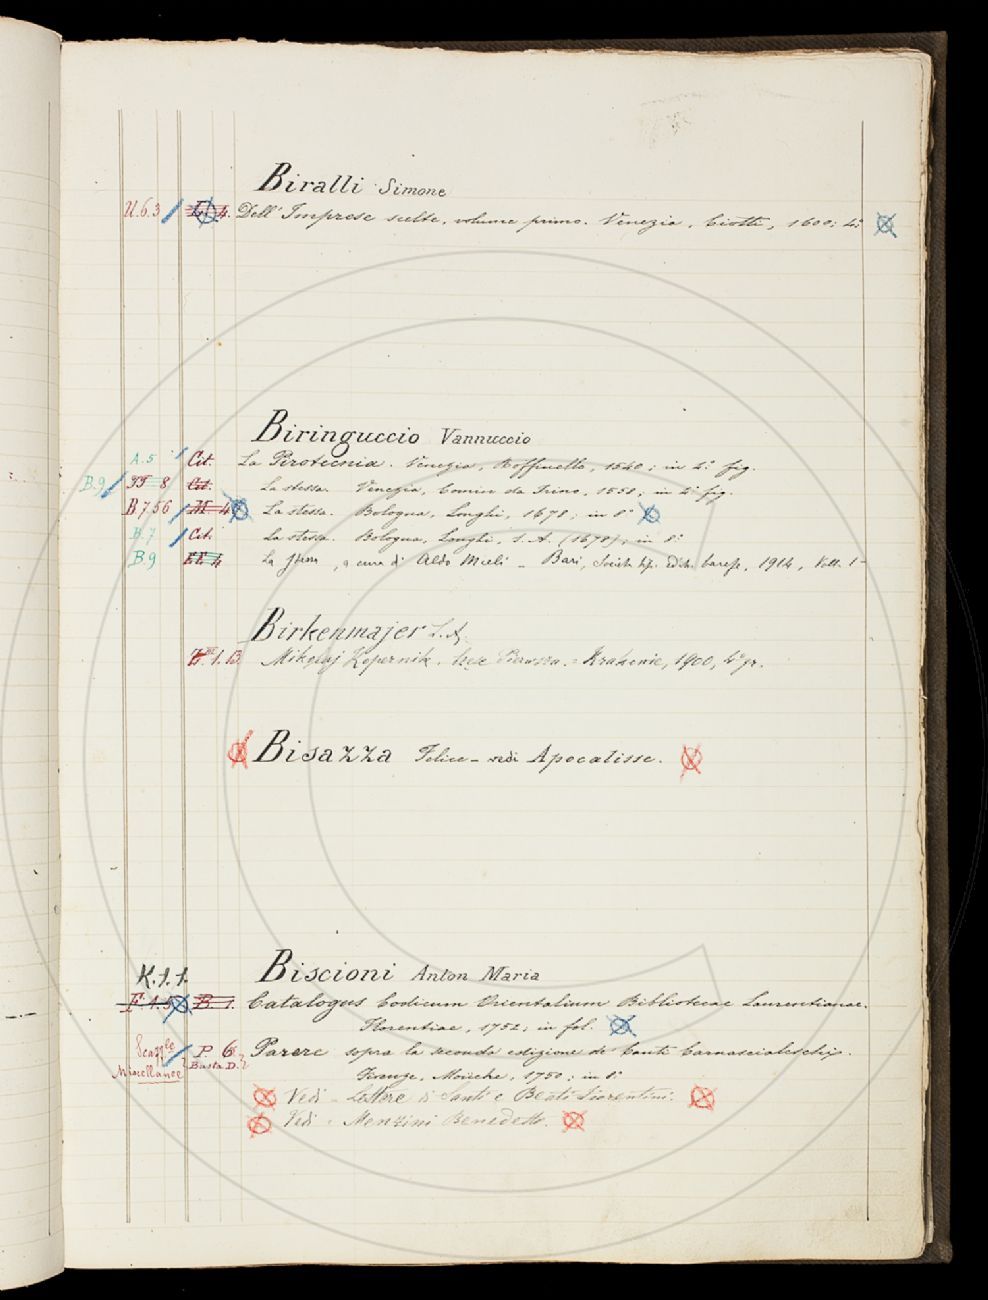 Biralli Simone
U.6.3 4. Dell'Imprese scelte, volume primo. Venezia, Ciotti, 1600; 4.°
Biringuccio Vannuccio
A.5 Cit. La Pirotecnia. Venezia, Roffinello, 1540; in 4.° fig.
B.9 TT 8 Cit. La stessa. Venezia, Comin da Trino, 1558; in 4.° fig.
B 7 56 M 4 La stessa. Bologna, Longhi, 1678; in 8.°
B.7 Cit. La stessa. Bologna, Longhi, S. A. (1678); in 8.°
B.9 4 La stessa, a cura di Aldo Mieli - Bari, Società tip. edit. barese, 1914, Voll. 1-
Birkenmajer L. A.
1. 13. Mikolaj Kopernik. - Krakowie, 1900, 4° gr.
Bisazza Felice - vedi Apocalisse.
K.1.1. Biscioni Anton Maria
F. 1.5 B. 1. Catalogus Codicum Orientalium Bibliotecae Laurentianae.
Florentiae, 1752; in fol.
P. 6. Parere sopra la seconda edizione de' Canti Carnascialeschi.
Miscellanee Busta D. Firenze, Moücke, 1750; in 8.°
Vedi - Lettere di Santi e Beati Fiorentini.
Vedi - Menzini Benedetto.